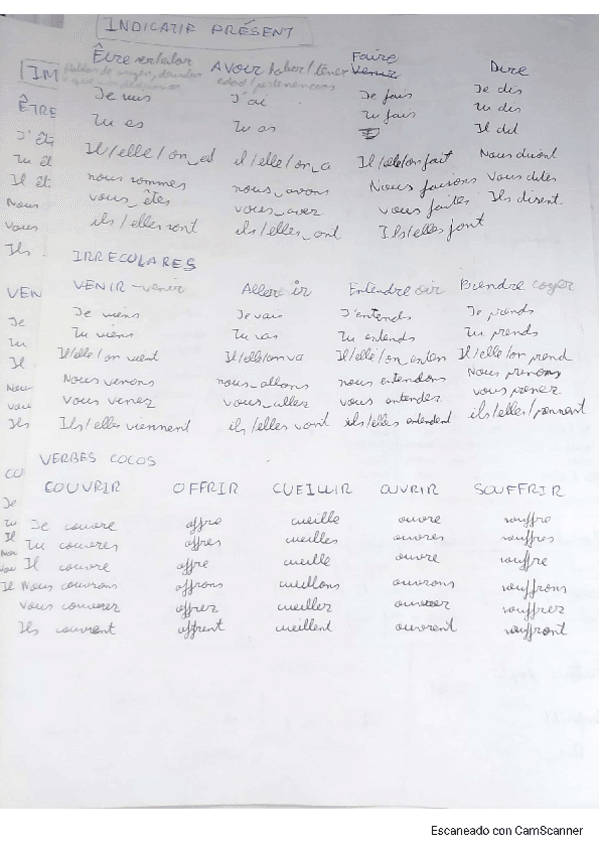 INDICATIF PRÉSENT
Être ser/estar Avoir haber/tener Faire Dire
IM Venir
edad/pertenencias
ÊTRE Je suis J'ai Je fais Je dis
J'ét Tu es Tu as Tu fais Tu dis
Tu ét Il/elle/on_est il/elle/on_a Il/elle/on fait Il dit
Il ét nous sommes nous_avons Nous faisons Nous disont
Nous vous_êtes vous_avez vous faites Vous dites
Vous ils/elles sont ils/elles_ont Ils/elles font Ils disent.
Ils IRRECULARES
VEN VENIR - venir Aller ir Entendre oir Prendre coger
Je Je viens Je vais J'entends Je prends
Tu Tu viens Tu vas Tu entends Tu prends
Il Il/elle/on vient Il/elle/on va Il/elle/on_enten Il/elle/on prend
Nou Nous venons nous_allons nous entendons Nous prenons
vou Vous venez vous_allez vous entendez vous prenez
Ils Ils/elles viennent ils/elles vont ils/elles entendent ils/elles/prennent
VERBES COCOS
CO COUVRIR OFFRIR CUEILLIR OUVRIR SOUFFRIR
Je Je couvre offre cueille ouvre souffre
Tu Tu couvres offres cueilles ouvres souffres
Il Il couvre offre cueille ouvre souffre
Nou Nous couvrons offrons cueillons ouvrons souffrons
vou Vous couvrez offrez cueillez ouvrez souffrez
Il Ils couvrent offrent cueillent ouvrent souffront
Escaneado con CamScanner